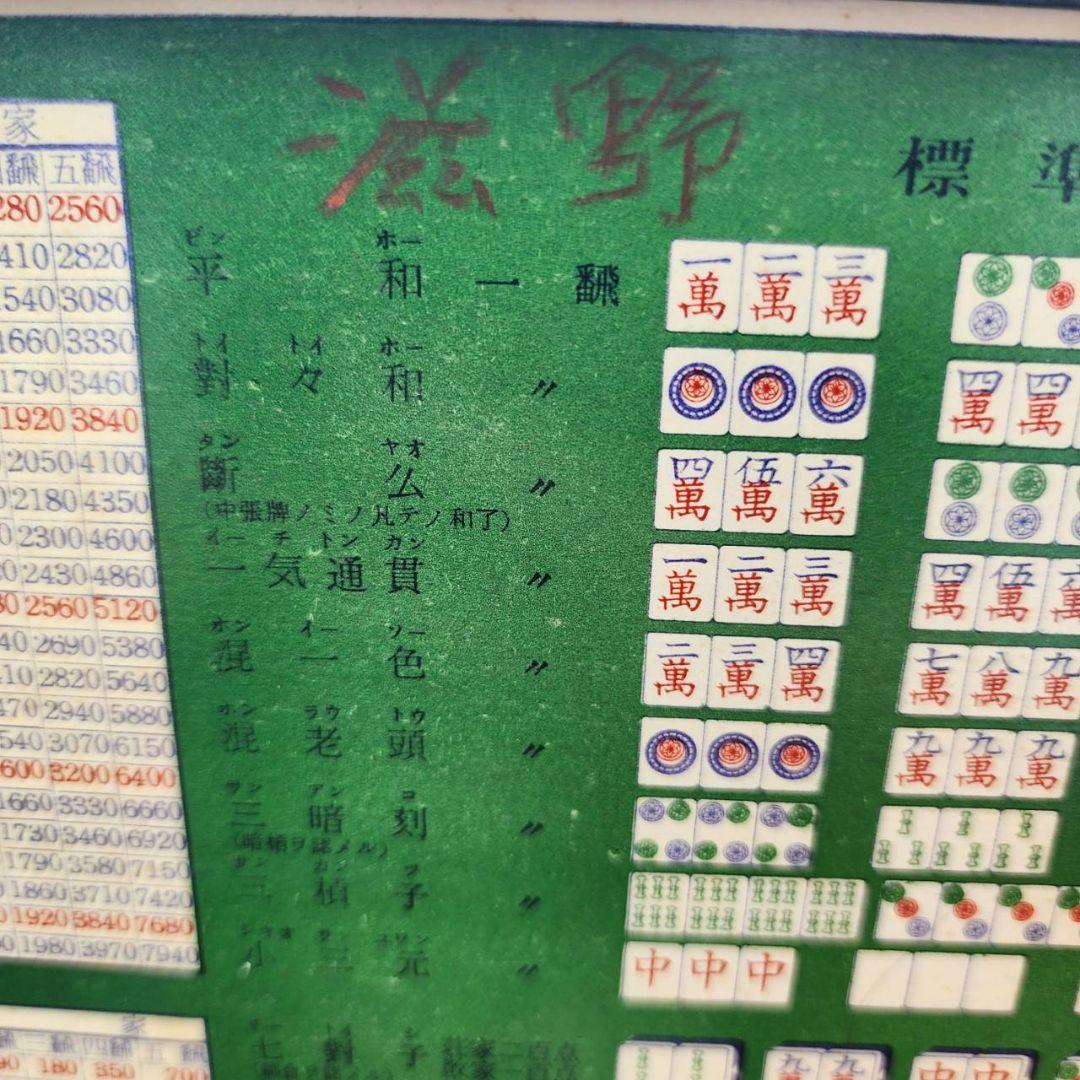 滋野
標準
家
翻 五翻
280 2560
410 2820
540 3080
1660 3330
1790 3460
1920 3840
2050 4100
2180 4350
2300 4600
2430 4860
2560 5120
2690 5380
2820 5640
2940 5880
3070 6150
3200 6400
1660 3330 6660
1730 3460 6920
1790 3580 7150
1860 3710 7420
1920 3840 7680
1980 3970 7940
家
四翻 五翻
180 350 700
ピン ホー
平和 一翻
一萬 二萬 三萬
トイ トイ ホー
對々和 〃
四萬 四萬
タン ヤオ
斷么 〃
(中張牌ノミノ凡テノ和了)
四萬 伍萬 六萬
イー チ トン カン
一気通貫 〃
一萬 二萬 三萬 四萬 伍萬
ホン イー ソー
混一色 〃
二萬 三萬 四萬 七萬 八萬 九萬
ホン ラウ トウ
混老頭 〃
九萬 九萬 九萬
サン アン コ
三暗刻 〃
三槓子 〃
小三元 〃
中 中 中
七對子